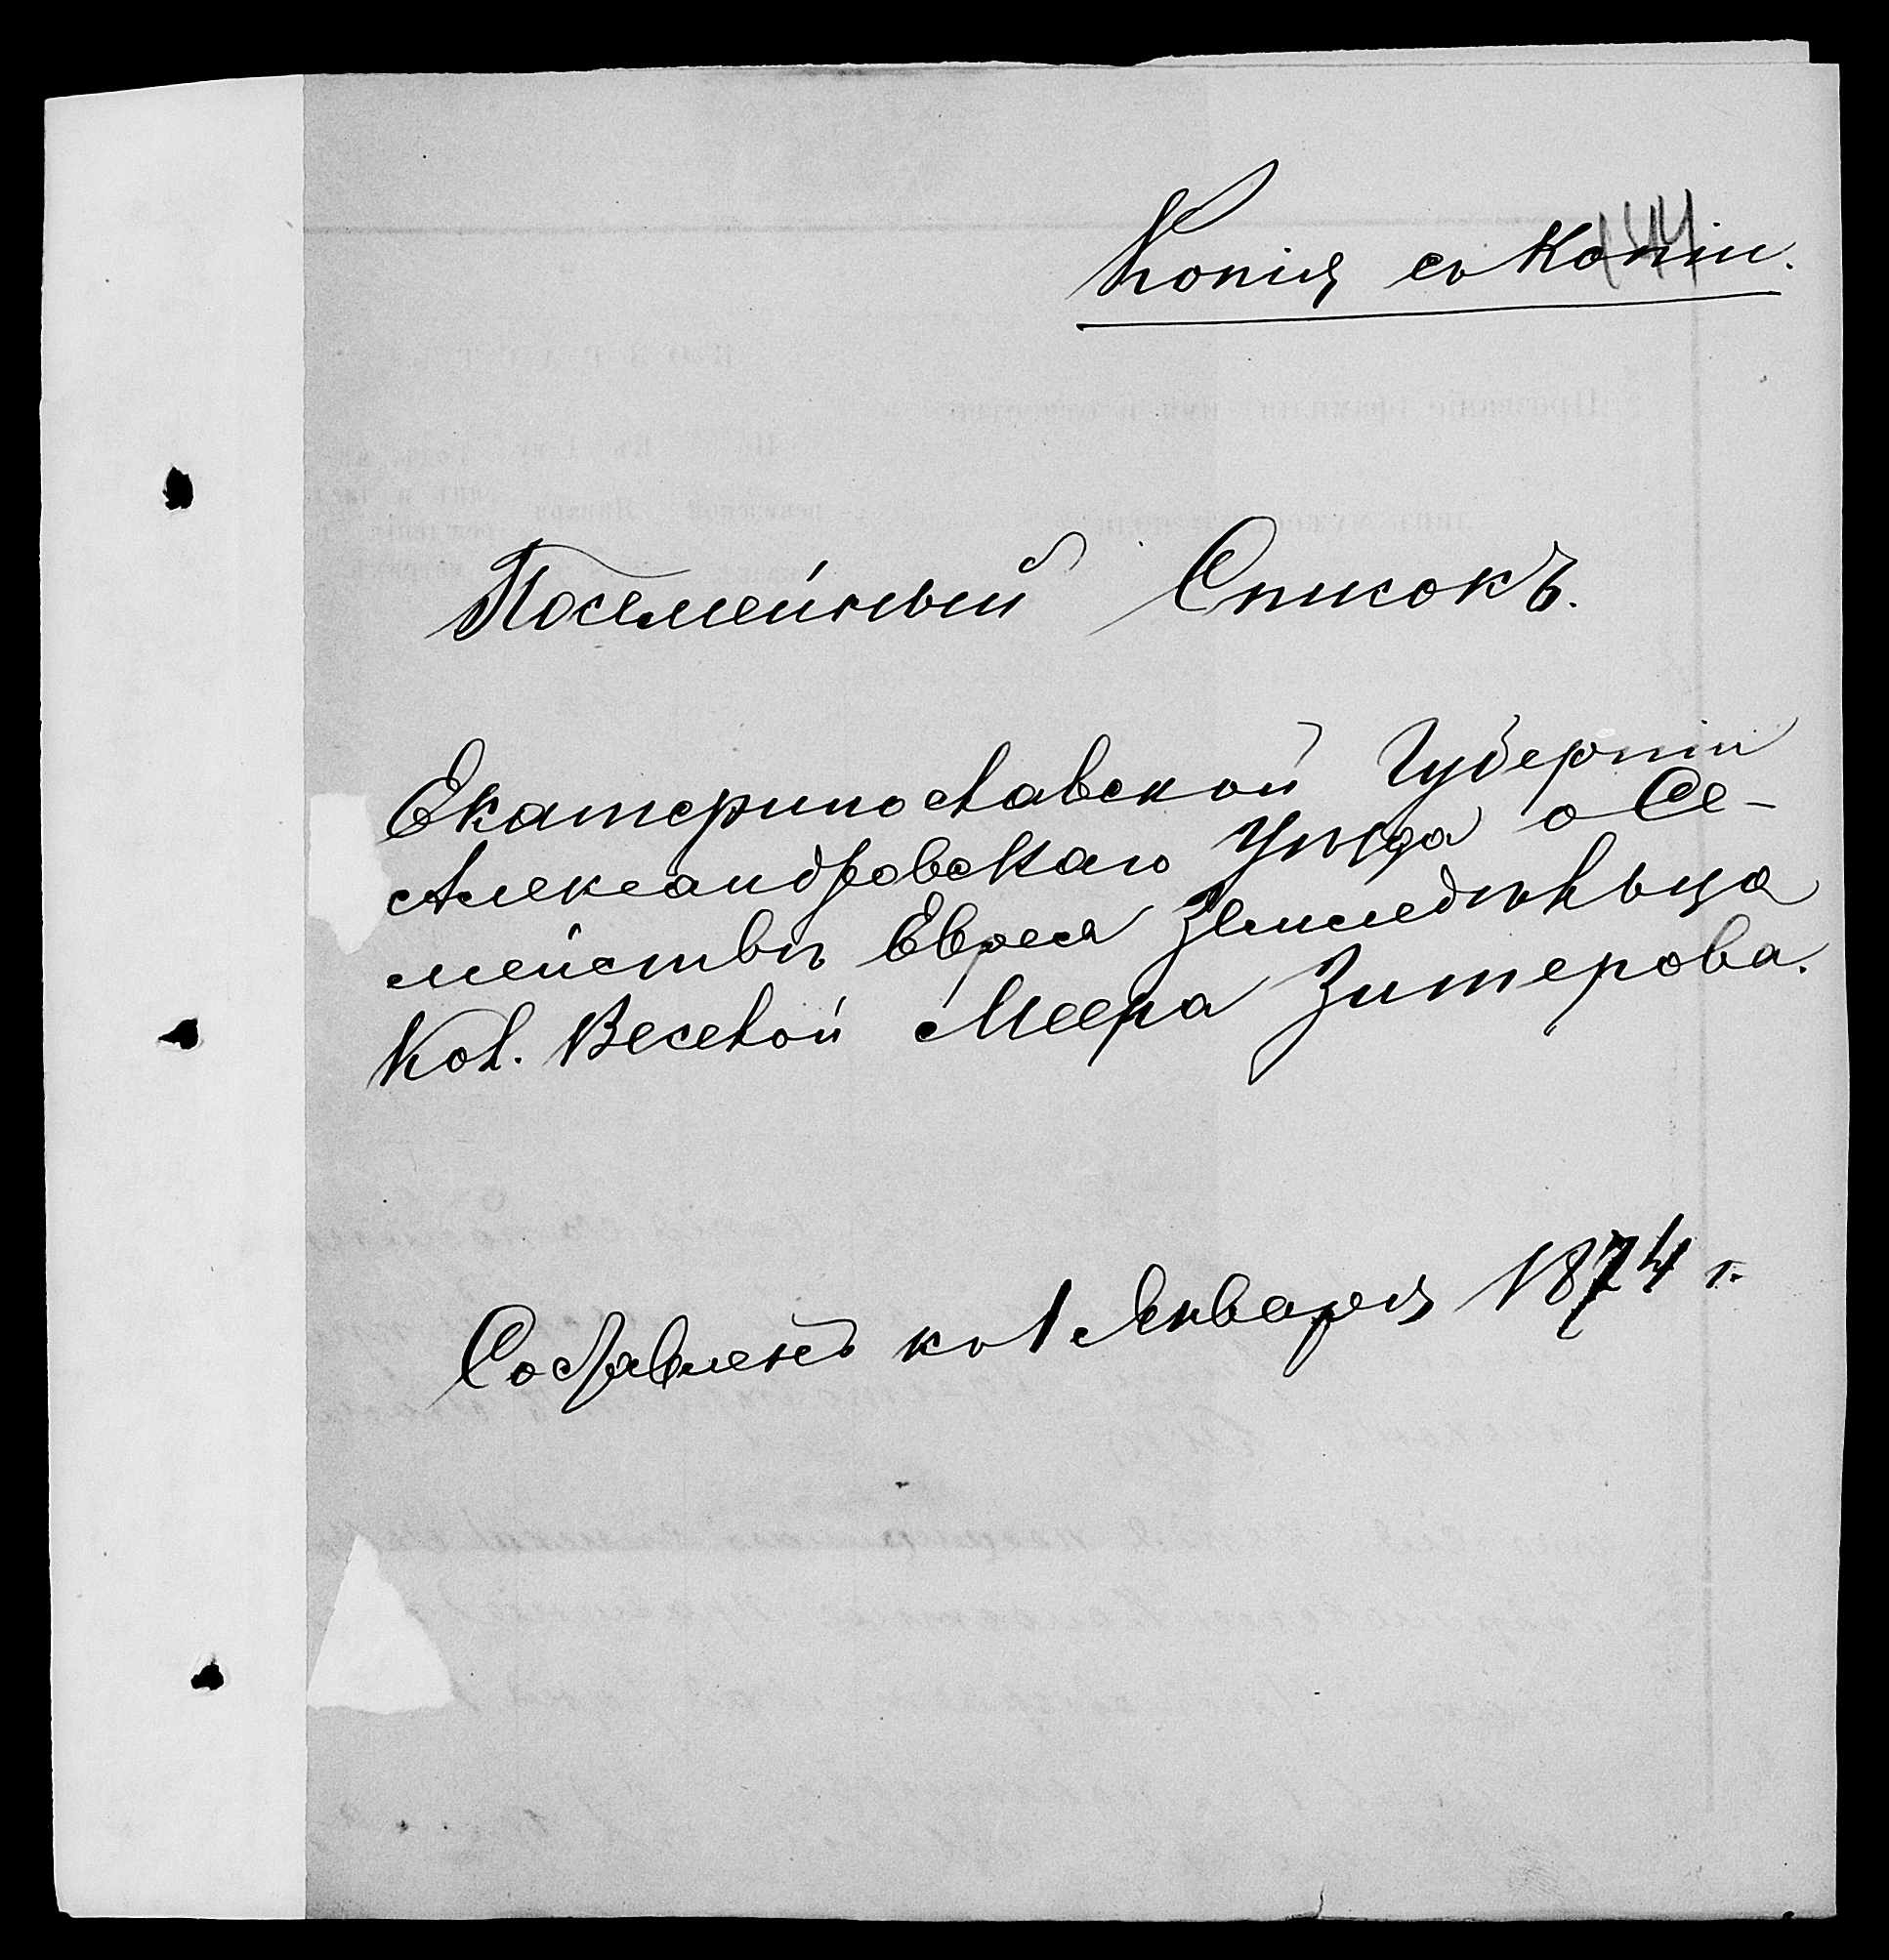 144
Копія съ Копіи.
Посемейный Списокъ.
Екатеринославской Губерніи
Александровскаго Уѣзда о Се-
мействѣ Еврея Земледѣльца
Кол. Веселой Меера Зитерова.
Составленъ къ 1 Января 1874 г.